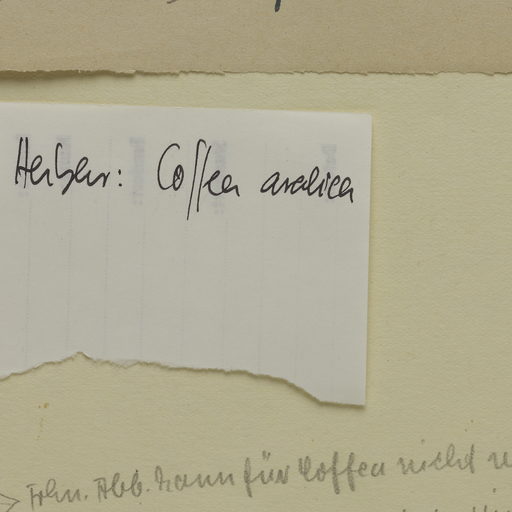 Herbar: Coffea arabica
Abb. kann für Coffea nicht